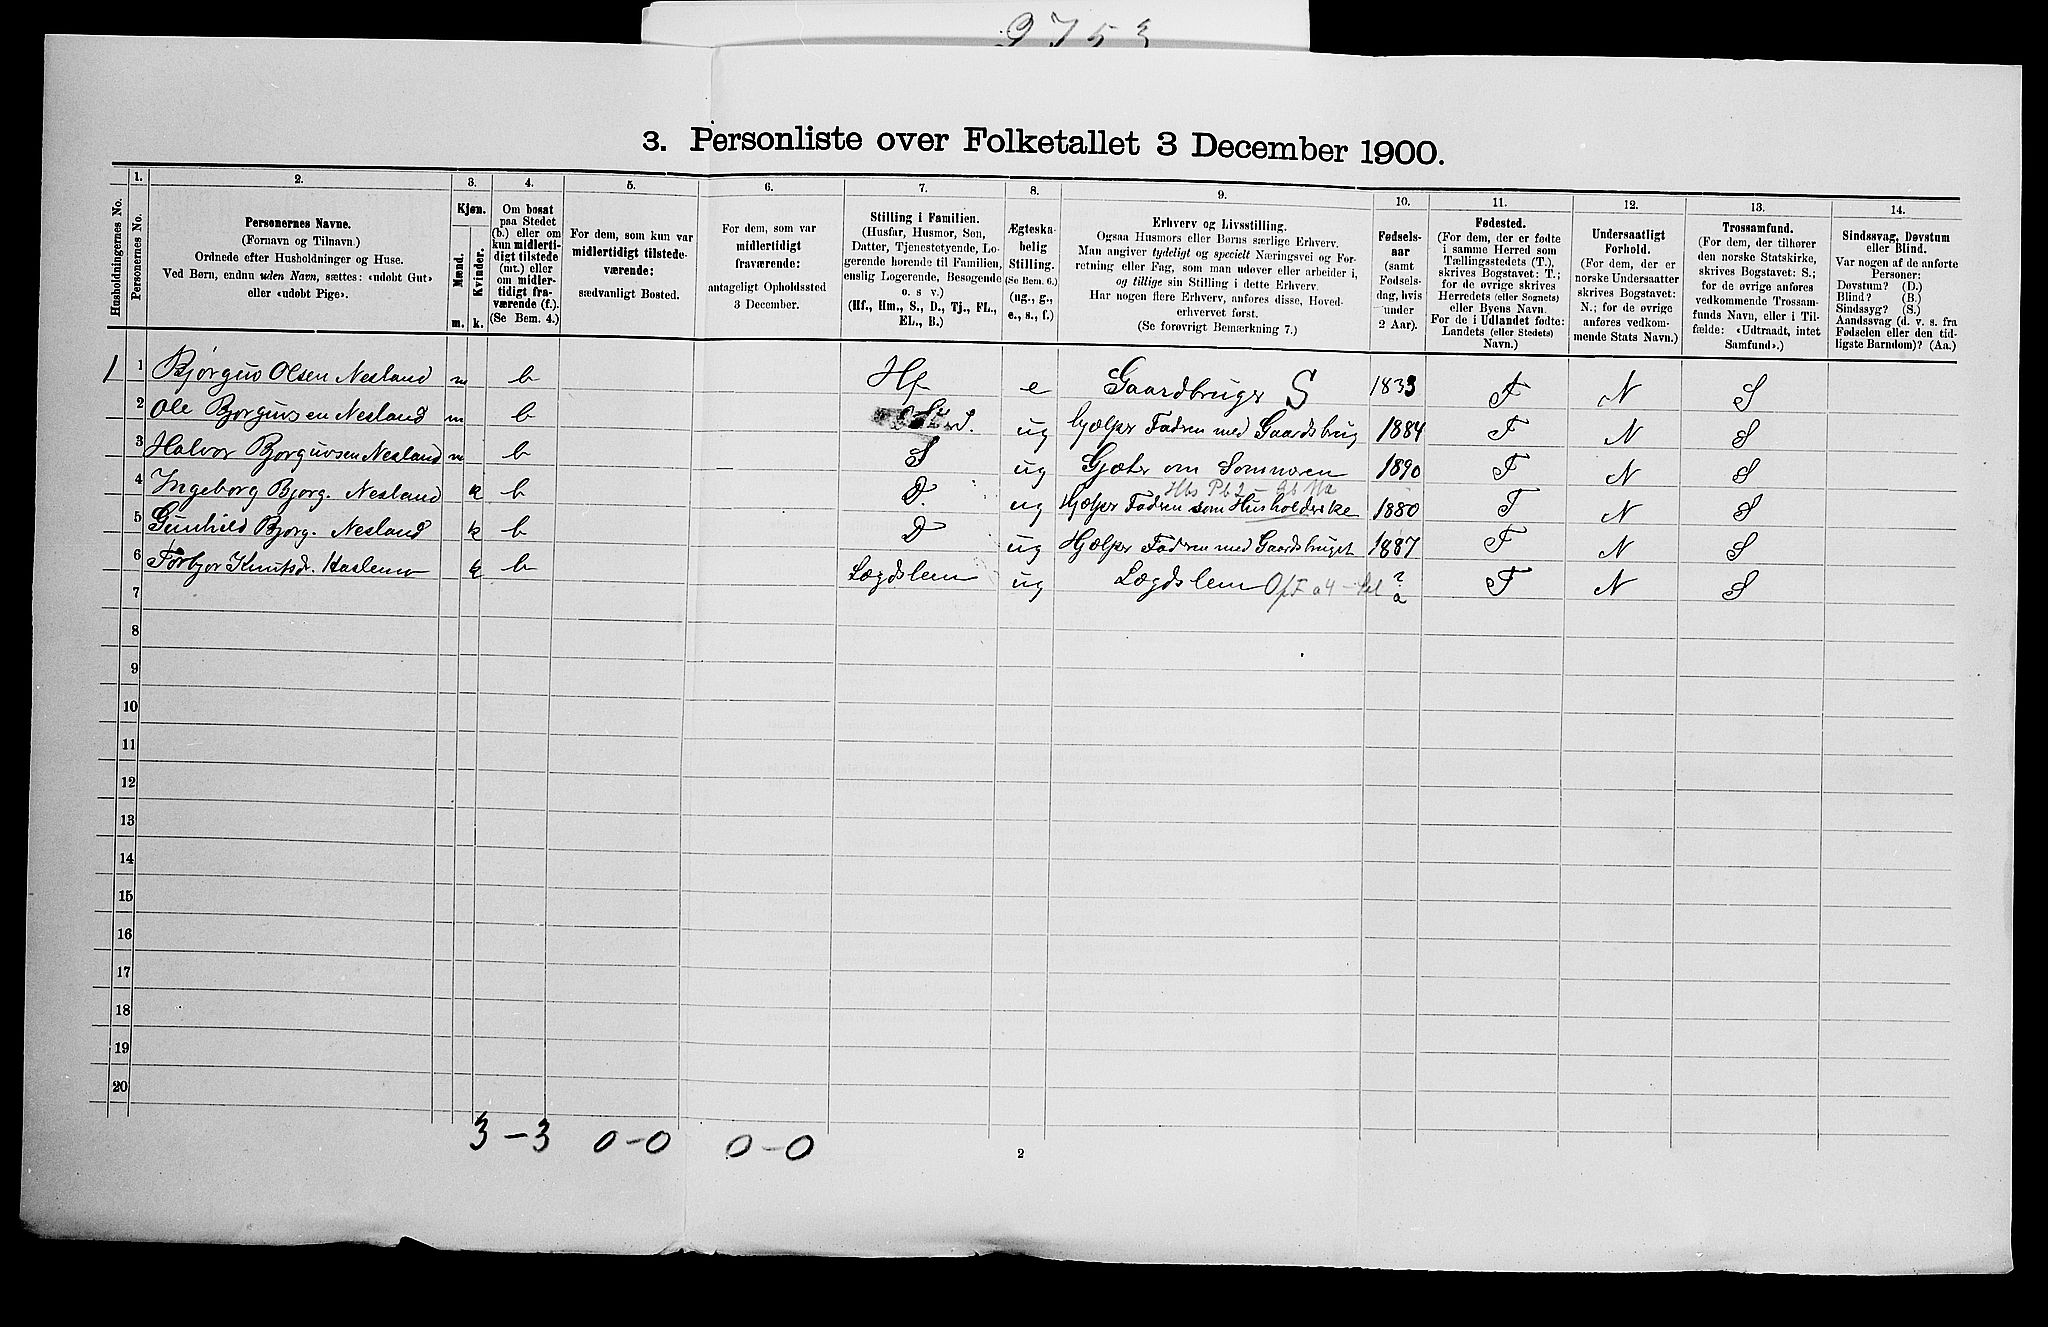 3. Personliste over Folketallet 3 December 1900.
Husholdningernes No.
1.
Personernes No.
2.
Personernes Navne.
(Fornavn og Tilnavn.)
Ordnede efter Husholdninger og Huse.
Ved Børn, endnu uden Navn, sættes: «udøbt Gut»
eller «udøbt Pige».
3.
Kjøn.
Mænd.
Kvinder.
m. k.
4.
Om bosat
paa Stedet
(b.) eller om
kun midlerti-
digt tilstede
(mt.) eller
om midler-
tidigt fra-
værende (f.).
(Se Bem. 4.)
5.
For dem, som kun var
midlertidigt tilstede-
værende:
sædvanligt Bosted.
6.
For dem, som var
midlertidigt
fraværende:
antageligt Opholdssted
3 December.
7.
Stilling i Familien.
(Husfar, Husmor, Søn,
Datter, Tjenestetyende, Lo-
gerende hørende til Familien,
enslig Logerende, Besøgende
o. s v.)
(Hf., Hm., S., D., Tj., FL.,
EL., B.)
8.
Ægteska-
belig
Stilling.
(Se Bem. 6.)
(ug., g.,
e., s., f.)
9.
Erhverv og Livsstilling.
Ogsaa Husmors eller Børns særlige Erhverv.
Man angiver tydeligt og specielt Næringsvei og For-
retning eller Fag, som man udøver eller arbeider i,
og tillige sin Stilling i dette Erhverv.
Har nogen flere Erhverv, anføres disse, Hoved-
erhvervet først.
(Se forøvrigt Bemærkning 7.)
10.
Fødsels-
aar
(samt
Fødsels-
dag, hvis
under
2 Aar).
11.
Fødested.
(For dem, der er fødte
i samme Herred som
Tællingsstedets (T.),
skrives Bogstavet: T.;
for de øvrige skrives
Herredets (eller Sognets)
eller Byens Navn.
For de i Udlandet fødte:
Landets (eller Stedets)
Navn.)
12.
Undersaatligt
Forhold.
(For dem, der er
norske Undersaatter
skrives Bogstavet:
N.; for de øvrige
anføres vedkom-
mende Stats Navn.)
13.
Trossamfund.
(For dem, der tilhører
den norske Statskirke,
skrives Bogstavet: S.;
for de øvrige anføres
vedkommende Trossam-
funds Navn, eller i Til-
fælde: «Udtraadt, intet
Samfund».)
14.
Sindssvag, Døvstum
eller Blind.
Var nogen af de anførte
Personer:
Døvstum? (D.)
Blind? (B.)
Sindssyg? (S.)
Aandssvag (d. v. s. fra
Fødselen eller den tid-
ligste Barndom)? (Aa.)
1 1 Bjørguv Olsen Nesland m b Hf e Gaardbruger S 1833 T N S
2 Ole Bjørguvsen Nesland m b S. ug hjælper Fadren med Gaardsbrug 1884 T N S
3 Halvor Bjørguvsen Nesland m b S ug Gjæter om Sommeren 1890 T N S
4 Ingeborg Bjørg. Nesland k b D. ug Hjælper Fadren som Husholderske 1880 T N S
5 Gunhild Bjørg. Nesland k b D ug Hjælper Fadren med Gaardsbruget 1887 T N S
6 Torbjør Knutsd. Haslemo k b Lægdslem ug Lægdslem ? T N S
7
8
9
10
11
12
13
14
15
16
17
18
19
20
3 - 3 0 - 0 0 - 0
2